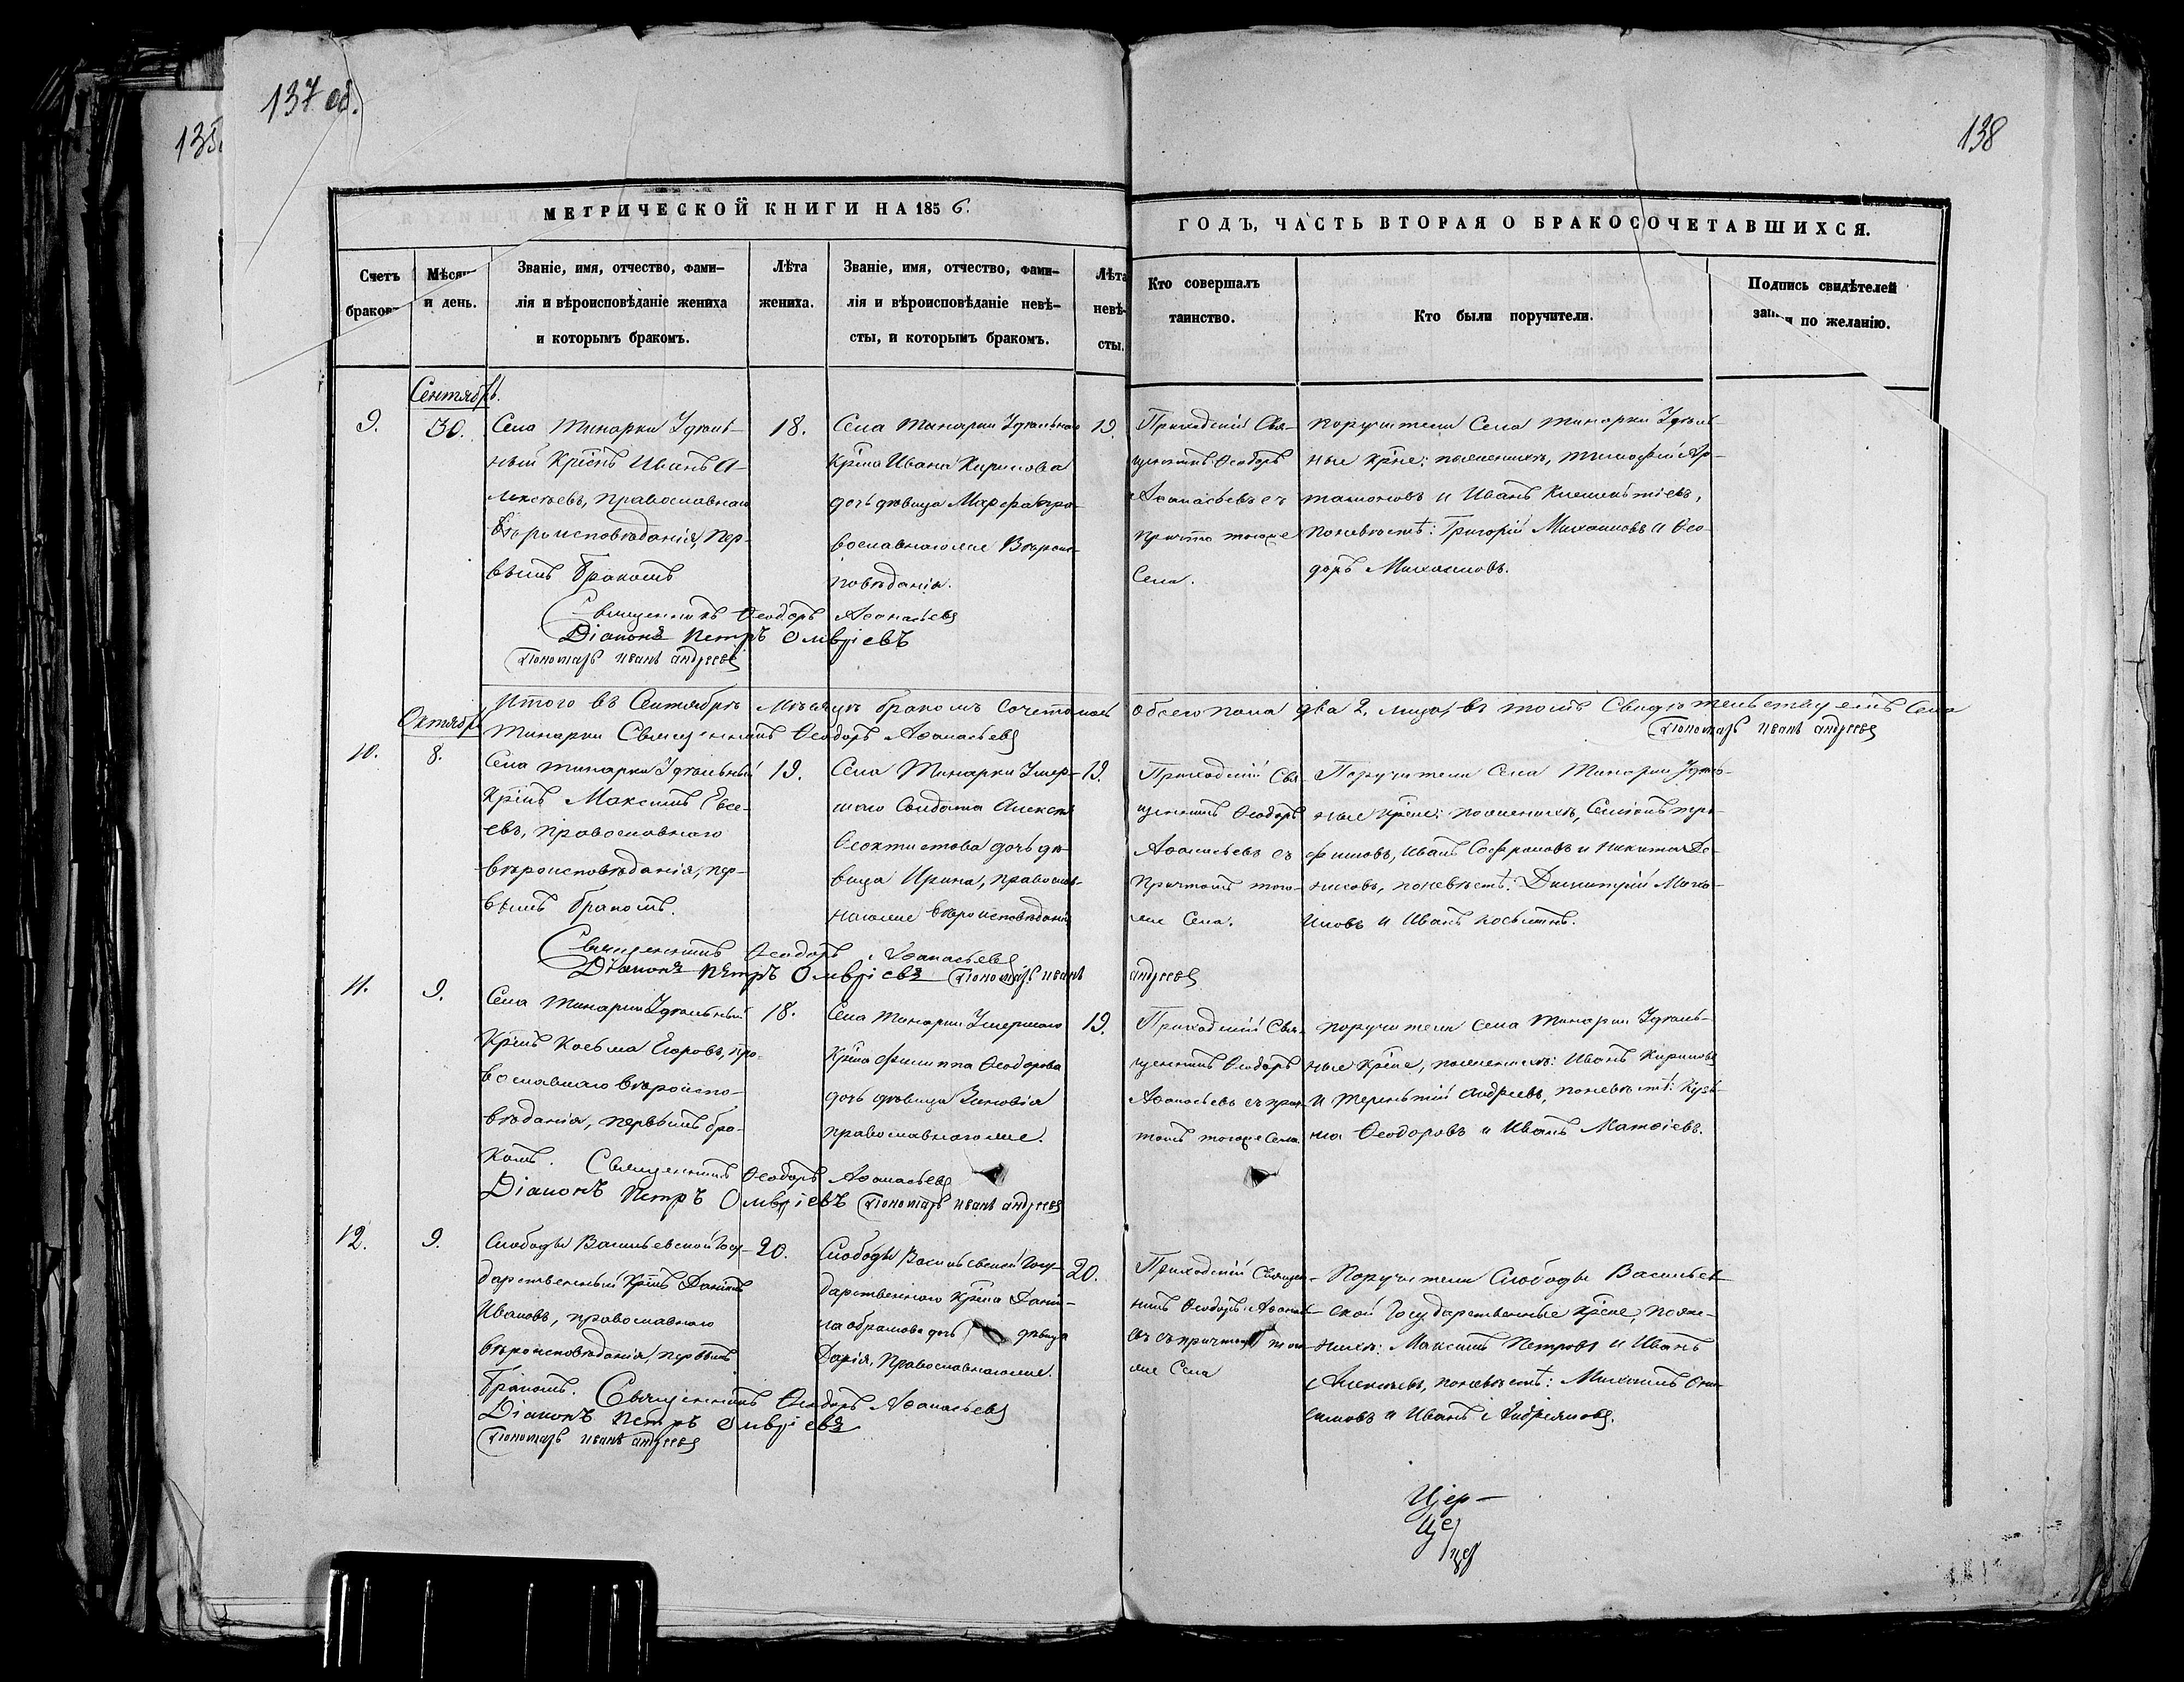 137 об.
135
138
МЕТРИЧЕСКОЙ КНИГИ НА 1856.
ГОДЪ, ЧАСТЬ ВТОРАЯ О БРАКОСОЧЕТАВШИХСЯ.
Счетъ
браковъ
Мѣсяц
и день.
Званіе, имя, отчество, фами-
лія и вѣроисповѣданіе жениха
и которымъ бракомъ.
Лѣта
жениха.
Званіе, имя, отчество, фами-
лія и вѣроисповѣданіе невѣ-
сты, и которымъ бракомъ.
Лѣта
невѣ-
сты.
Кто совершалъ
таинство.
Кто были поручители.
Подпись свидѣтелей
зап и по желанію.
Сентябрь.
9.
30.
Села Тинарки Удѣль-
ный Крѣнъ Иванъ А-
лексѣевъ, православнаго
вѣроисповѣданія, пер-
вымъ бракомъ
18.
Села Тинарки Удѣльнаго
Крѣна Ивана Кирилова
дочь дѣвица Марфа пра-
вославнагоже вѣроис-
повѣданія.
19.
Приходскій Свя-
щенникъ Ѳеодоръ
Аѳанасьевъ съ
причтомъ тогоже
Села.
Поручители Села Тинарки Удѣль-
ные Крѣне: поженихѣ, Тимофей Ар-
тамоновъ и Иванъ Клементіевъ,
поневѣстѣ: Григорій Михаиловъ и Ѳео-
доръ Михаиловъ.
Священникъ Ѳеодоръ Аѳанасьевъ
Діаконъ Петръ Олвріевъ
Пономарь Иванъ Андреевъ
Итого въ Сентябрѣ мѣсяцѣ бракомъ сочеталось обоего пола два 2. лица, въ томъ свидѣтельствуемъ Села
Тинарки Священникъ Ѳеодоръ Аѳанасьевъ
Пономарь Иванъ Андреевъ
Октябрь
10.
8.
Села Тинарки Удѣльный
Крѣнъ Максимъ Евсе-
евъ, православнаго
вѣроисповѣданія, пер-
вымъ бракомъ.
19.
Села Тинарки Умер-
шаго Солдата Алексѣя
Ѳеоктистова дочь дѣ-
вица Ирина, православ-
нагоже вѣроисповѣданія
19.
Приходскій Свя-
щенникъ Ѳеодоръ
Аѳанасьевъ съ
Причтомъ того-
же Села.
Поручители Села Тинарки Удѣль-
ные Крѣне: поженихѣ, Семіонъ тро-
фимовъ, Иванъ Софроновъ и Никита Де-
нисовъ, поневѣстѣ: Димитрій Миха-
иловъ и Иванъ Косьминъ.
Священникъ Ѳеодоръ Аѳанасьевъ
Діаконъ Петръ Олвріевъ Пономарь Иванъ Андреевъ
11.
9.
Села Тинарки Удѣльный
Крѣнъ Косьма Егоровъ, пра-
вославнаго вѣроиспо-
вѣданія, первымъ бра-
комъ.
18.
Села Тинарки Умершаго
Крѣна Филиппа Ѳеодорова
дочь дѣвица Зиновія
православнагоже.
19.
Приходскій Свя-
щенникъ Ѳеодоръ
Аѳанасьевъ съ прич-
томъ тогоже Села.
Поручители Села Тинарки Удѣль-
ные Крѣне, поженихѣ: Иванъ Кириловъ
и Терентій Андреевъ, поневѣстѣ: Кузь-
ма Ѳеодоровъ и Иванъ Матѳіевъ.
Священникъ Ѳеодоръ Аѳанасьевъ
Діаконъ Петръ Олвріевъ Пономарь Иванъ Андреевъ
12.
9.
Слободы Васильевской Госу-
дарственный Крѣнъ Данилъ
Ивановъ, православнаго
вѣроисповѣданія, первымъ
бракомъ.
20.
Слободы Васильевской Госу-
дарственнаго Крѣна Дани-
ла Абрамова дочь дѣвица
Дарія, Православнагоже.
20.
Приходскій Священ-
никъ Ѳеодоръ Аѳанась-
евъ съ причтомъ того-
же Села
Поручители Слободы Васильев-
ской Государственные Крѣне, поже-
нихѣ: Максимъ Петровъ и Иванъ
Алексѣевъ, поневѣстѣ: Михаилъ Они-
симовъ и Иванъ Андреяновъ.
Священникъ Ѳеодоръ Аѳанасьевъ
Діаконъ Петръ Олвріевъ
Пономарь Иванъ Андреевъ